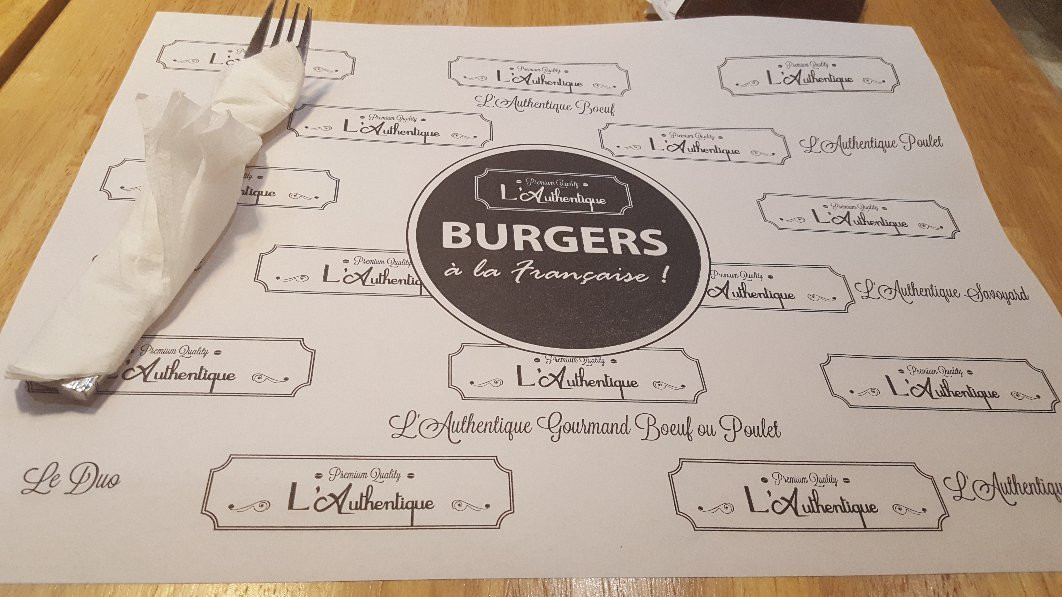 L'Authentique
Premium Quality
L'Authentique
Premium Quality
L'Authentique
L'Authentique Boeuf
Premium Quality
L'Authentique
Premium Quality
L'Authentique
L'Authentique Poulet
Premium Quality
L'Authentique
BURGERS
à la Française !
Premium Quality
L'Authentique
Premium Quality
L'Authentique
Premium Quality
L'Authentique
L'Authentique Savoyard
Premium Quality
L'Authentique
Premium Quality
L'Authentique
Premium Quality
L'Authentique
L'Authentique Gourmand Boeuf ou Poulet
Le Duo
Premium Quality
L'Authentique
Premium Quality
L'Authentique